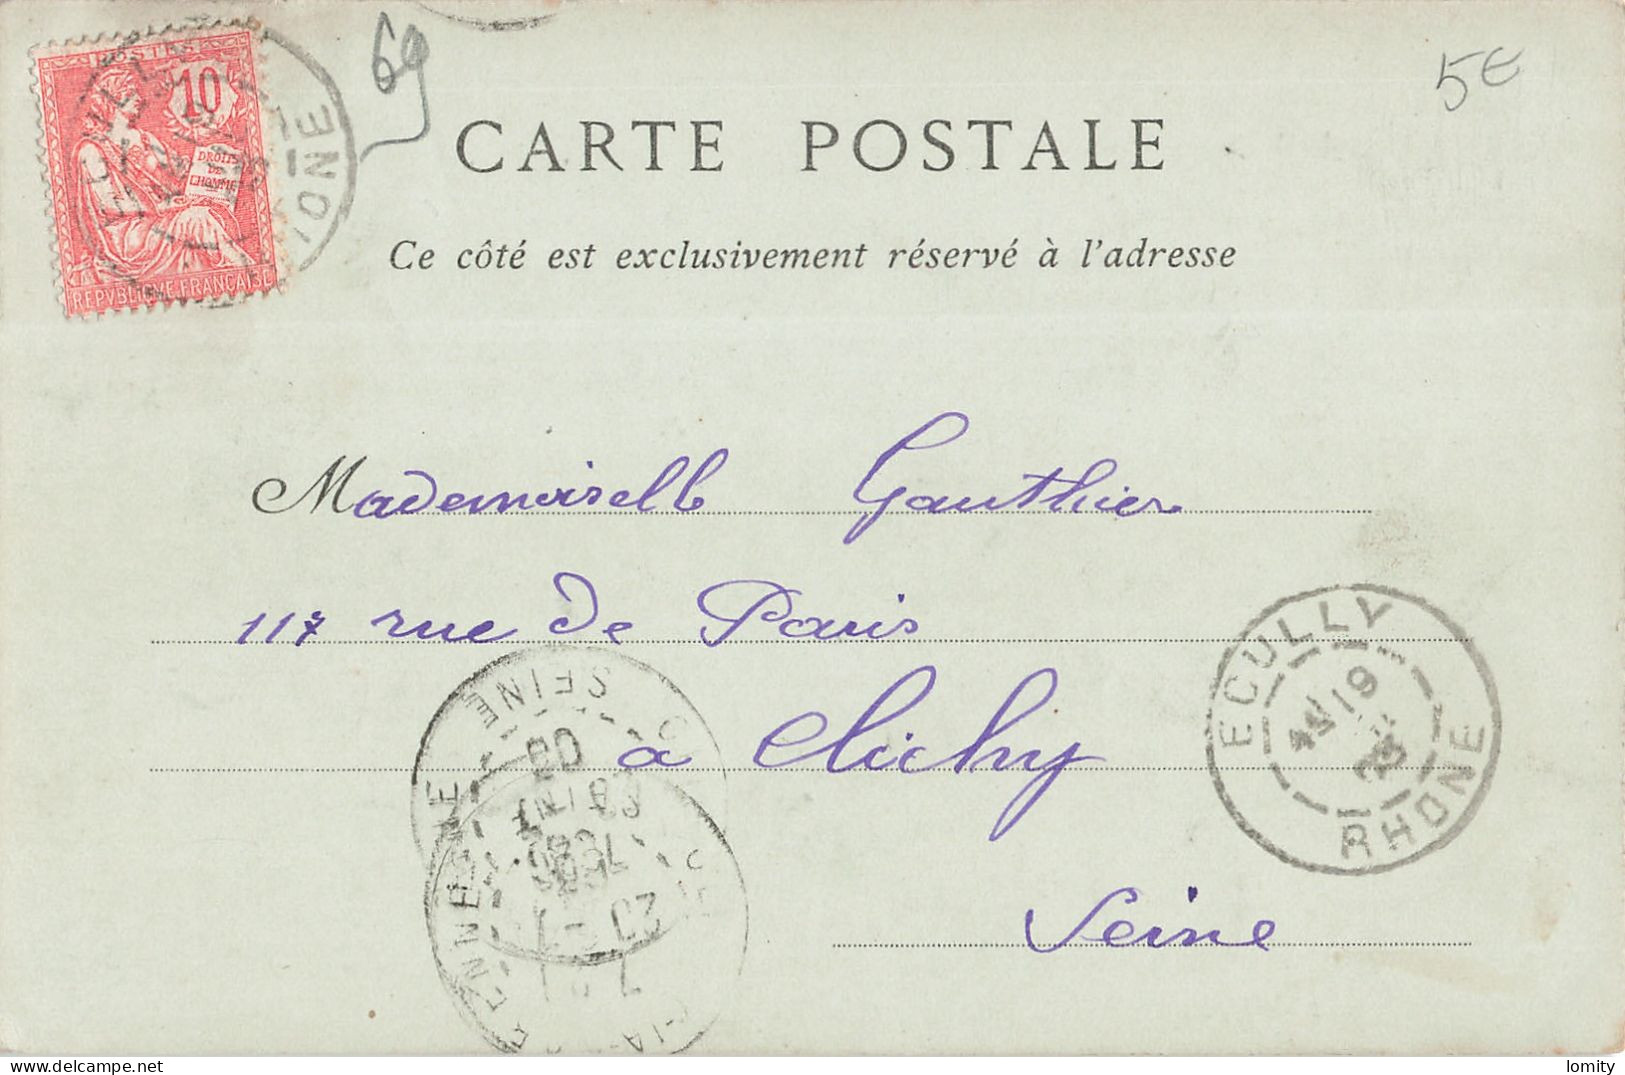 POSTES
10
DROITS
DE
L'HOMME
REPVBLIQVE FRANÇAISE
ECULLY
RHONE
69
5€
CARTE POSTALE
Ce côté est exclusivement réservé à l'adresse
Mademoiselle Gauthier
117 rue de Paris
à Clichy
Seine
ECULLY
19
RHONE
SEINE
lomity